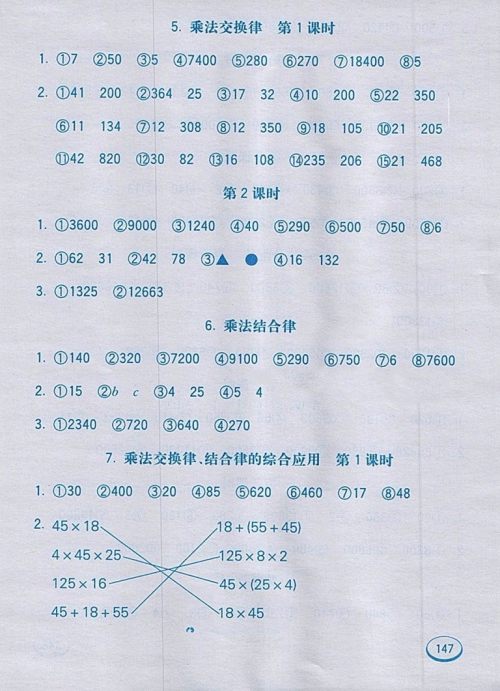 5. 乘法交换律 第 1 课时
1. ①7 ②50 ③5 ④7400 ⑤280 ⑥270 ⑦18400 ⑧5
2. ①41 200 ②364 25 ③17 32 ④10 200 ⑤22 350
⑥11 134 ⑦12 308 ⑧12 350 ⑨18 105 ⑩21 205
⑪42 820 ⑫30 82 ⑬16 108 ⑭235 206 ⑮21 468
第 2 课时
1. ①3600 ②9000 ③1240 ④40 ⑤290 ⑥500 ⑦50 ⑧6
2. ①62 31 ②42 78 ③▲ ● ④16 132
3. ①1325 ②12663
6. 乘法结合律
1. ①140 ②320 ③7200 ④9100 ⑤290 ⑥750 ⑦6 ⑧7600
2. ①15 ②b c ③4 25 ④5 4
3. ①2340 ②720 ③640 ④270
7. 乘法交换律、结合律的综合应用 第 1 课时
1. ①30 ②400 ③20 ④85 ⑤620 ⑥460 ⑦17 ⑧48
2. 45×18 18+(55+45)
4×45×25 125×8×2
125×16 45×(25×4)
45+18+55 18×45
147